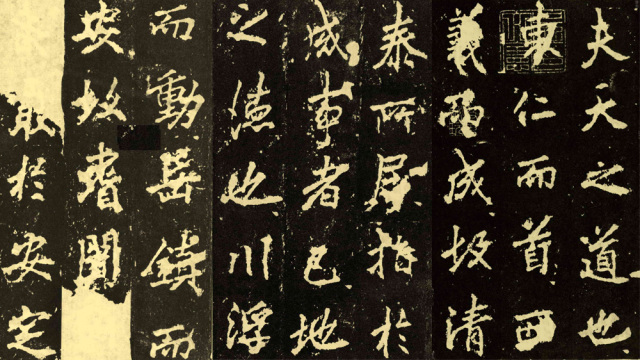 夫天之道也
東仁而首西
義而成故清
泰所居指於
成事者已地
之德也川浮
而動岳鎮而
安故耆闍
取於安定